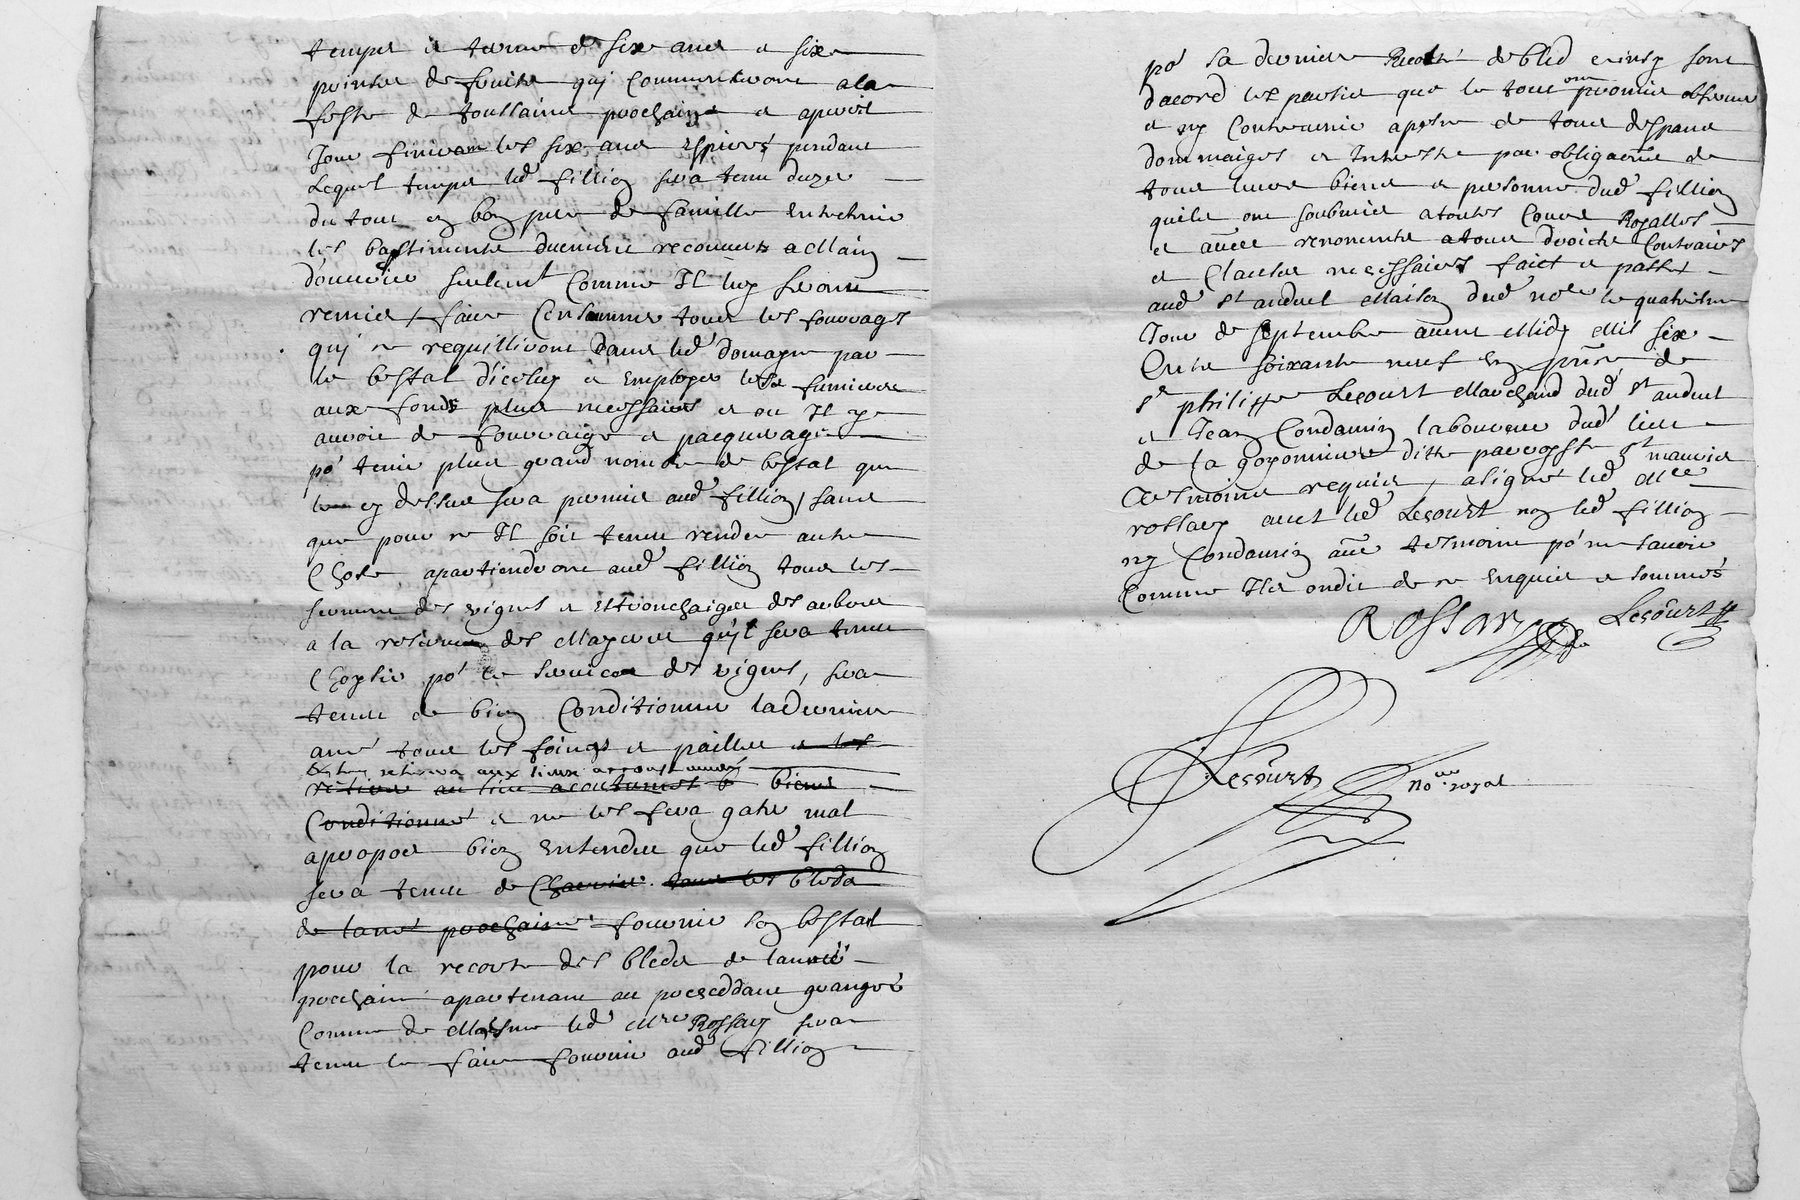 temps et terme de six ans et six
prinses de fruits quj Commenceront a la
feste de toussainct prochaine et apareil
Jour finiront les six ans Expirés pendant
Lequel temps led fillion sera tenu duzer
du tout en bon pere de famille entretenir
les bastiments duement recouverts a Main
douvrier seulemt Comme Il luy seront
remis, faire Consummer tous les fourrages
quj se requilliront dans led domayne par
le bestal diceluy et Employer les fumiers
aux fonds plus necessaires et ou Il y
auroit de fourraige et pacquerage
po' tenir plus grand nombre de bestal que
le cy dessus sera permis aud fillion, sans
que pour ce Il soit tenu rendre autre
Chose, apartiendront aud fillion tous les
serment des vignes et Estronchaiges des arbres
a la reserve des Mayeres qu'jl sera tenu
Choysir po' le service des vignes, sera
tenu de bien Conditionner la derniere
anné tous les foings et pailles et les
retirera aux lieux accoustumés
retirer au lieu acoutumet et biens
Conditionné et ne les fera gaster mal
apropos bien Entendu que led fillion
sera tenu de Charrier tous les bleds
de lanné prochaine fournir son bestail
pour la recorte des bleds de lanneé
prochaine apartenant au preceddant grangér
Comme de Mesme led Mre Rossary sera
tenu le faire fournir aud fillion
po' sa derniere Recolte de bled et insy sont
dacord les parties que le tout ont promis observer
et ny Contrevenir apeyne de tous despans
dommaiges et Interestz par obligaōn de
tous leurs biens et personne dud fillion
quils ont soubmis a toutes Cours Royalles
et avec renoncente a tous droicts Contraires
et Clauses necessaires faict et passé
aud St andeol Maison dud nore le quatriesme
Jour de septembre avant Midy Mil six
Cents soixante neuf En pn̄ce de
sr philippe Lecourt Marchand dud St andeol
et Jean Condamin laboureur dud lieu
de la goyonniere ditte parroysse St maurice
tesmoins requis, a signé led Mre
rossary avec led Lecourt non led fillion
ny Condamin avec tesmoins po' ne sauoir
Comme Ils ondit de ce Enquis et sommés
Rossary Lecourt
Lecourt nore royal